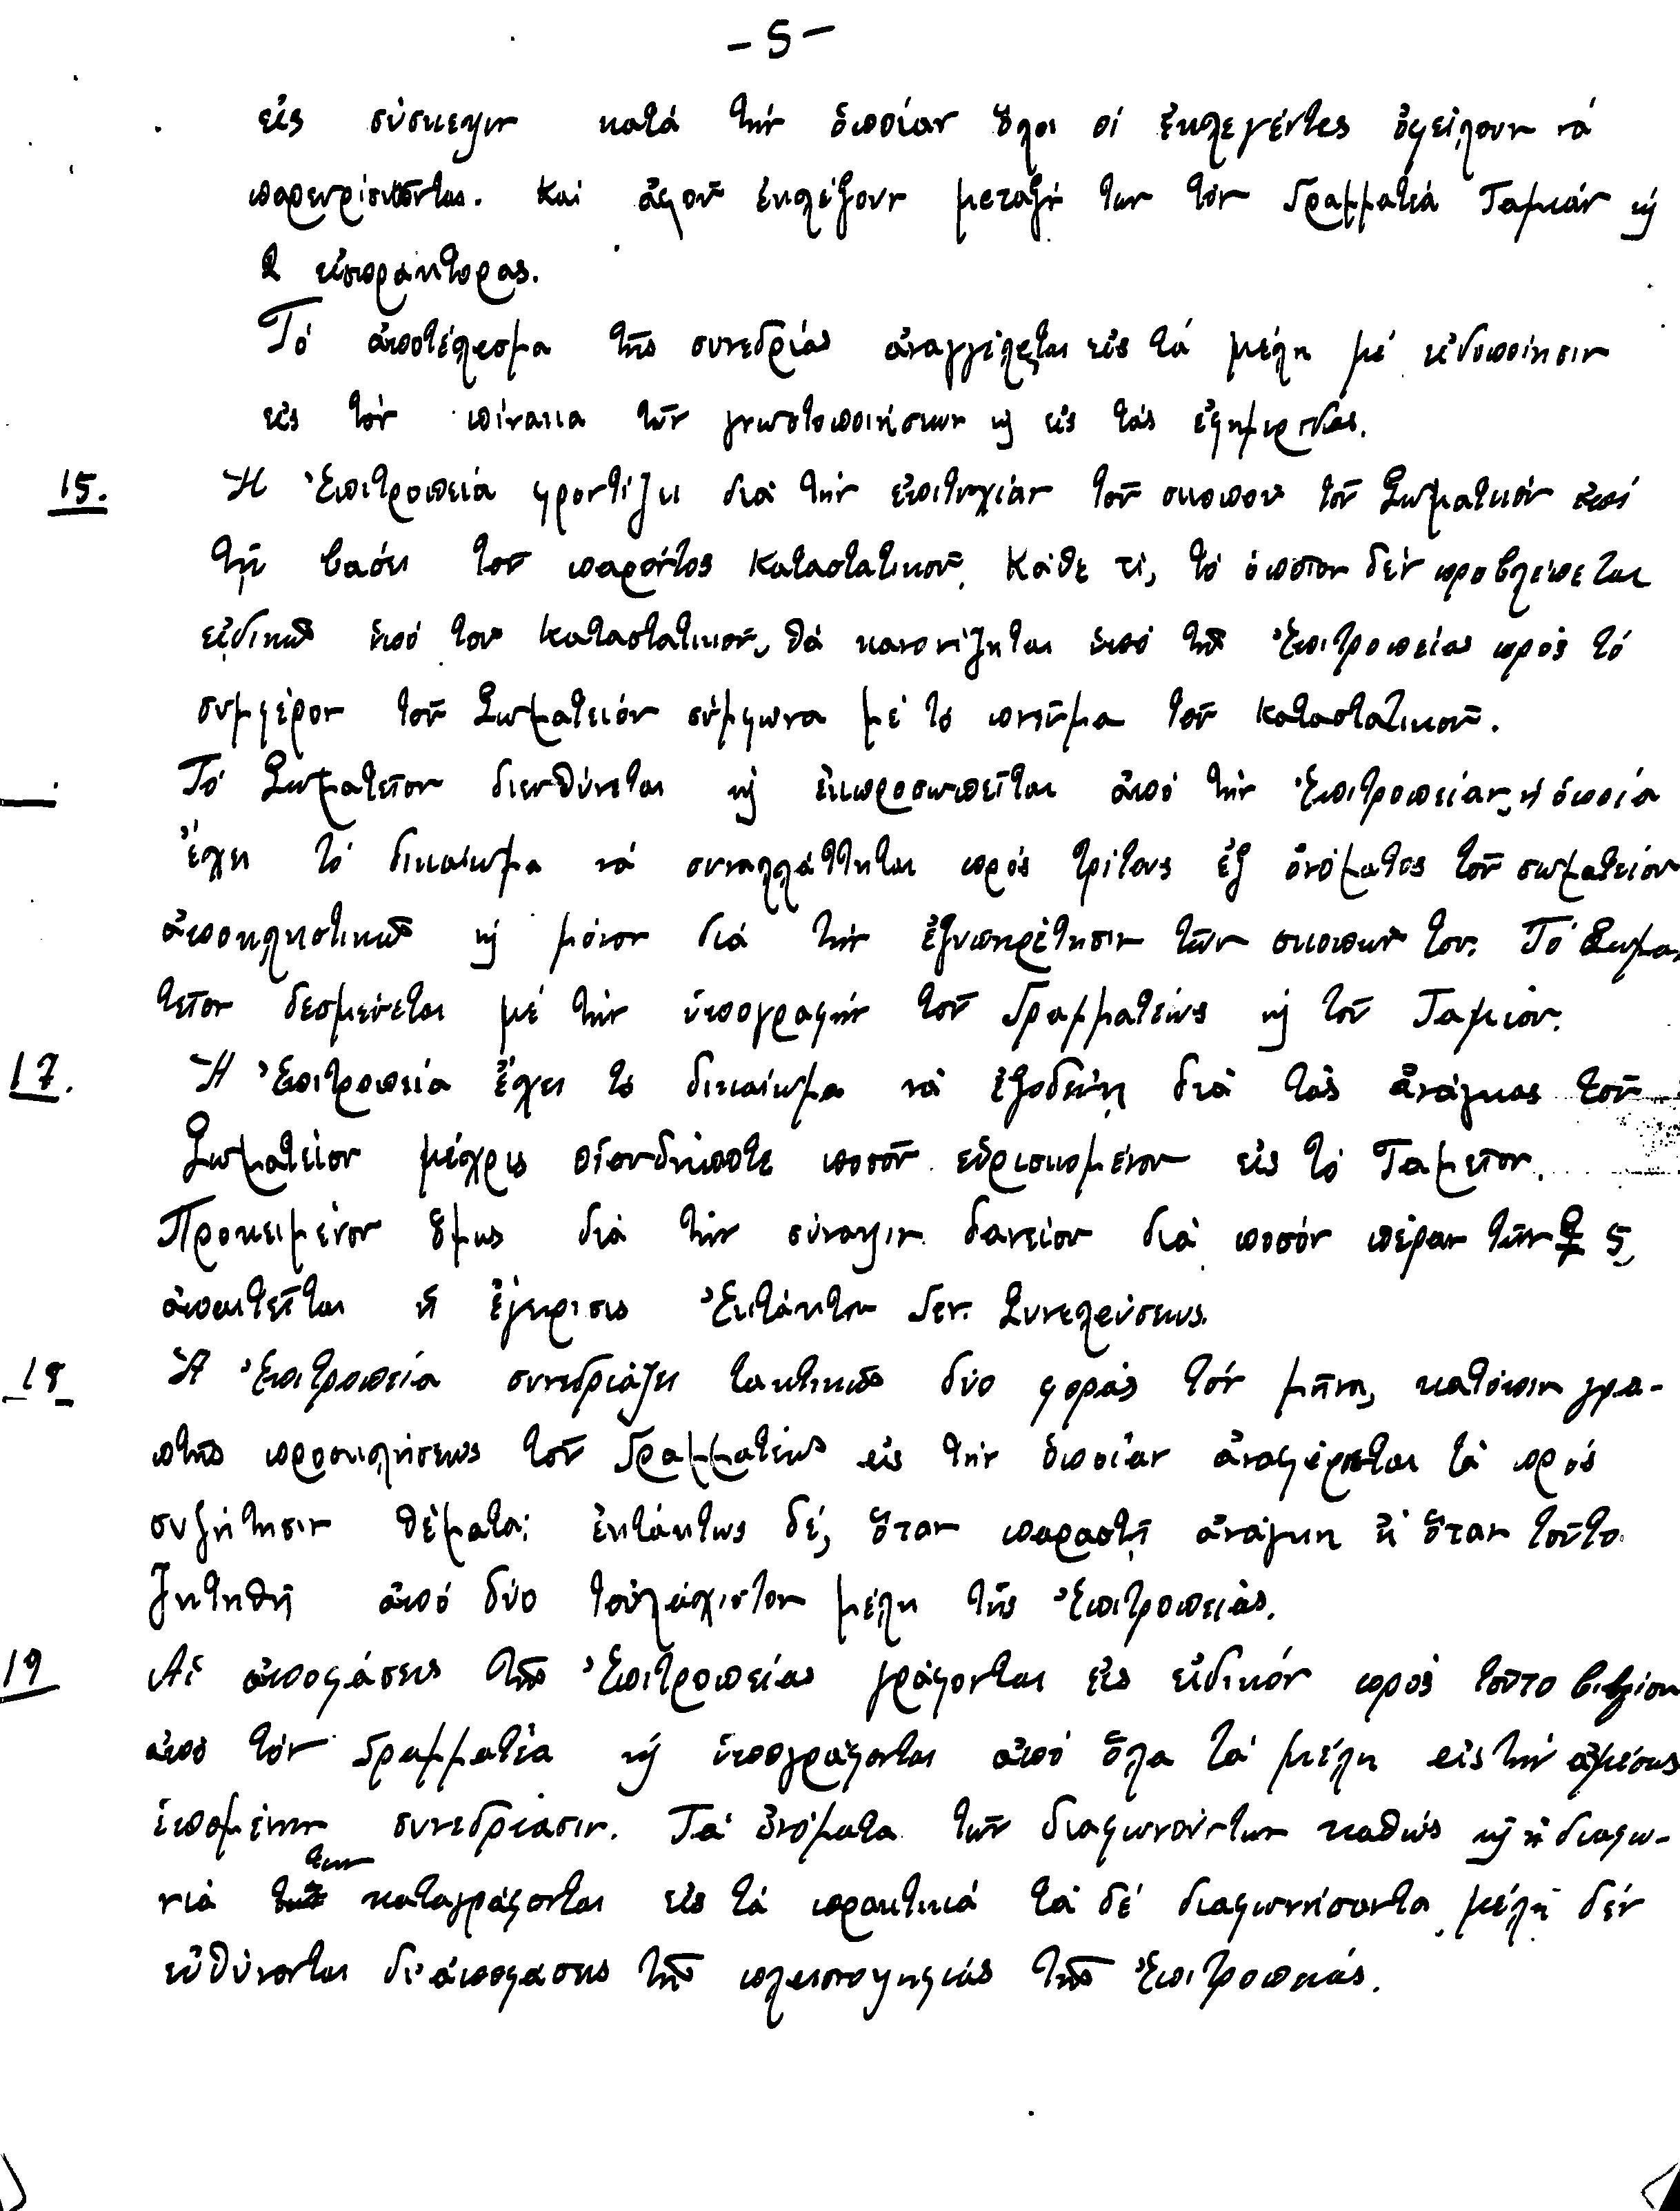 - 5 -
εἰς σύσκεψιν κατά τήν ὁποίαν ὅλοι οἱ ἐκλεγέντες ὀφείλουν νά
παρευρίσκονται. Καί ἀφοῦ ἐκλέξουν μεταξύ των τόν Γραμματέα Ταμίαν ϗ
2 εἰσπράκτορας.
Τό ἀποτέλεσμα τῆς συνεδρίας ἀναγγέλεται εἰς τά μέλη μέ εἰδοποίησιν
εἰς τόν πίνακα τῶν γνωστοποιήσεων ϗ εἰς τάς ἐφημερίδας.
15. Ἡ Ἐπιτροπεία φροντίζει διά τήν ἐπιτυχίαν τοῦ σκοποῦ τοῦ Σωματείου ἐπί
τῇ βάσει τοῦ παρόντος Καταστατικοῦ. Κάθε τί, τό ὁποῖον δέν προβλέπεται
εἰδικῶς ὑπό τοῦ Καταστατικοῦ, θά κανονίζηται ὑπό τῆς Ἐπιτροπείας πρός τό
συμφέρον τοῦ Σωματείου σύμφωνα μέ τό πνεῦμα τοῦ Καταστατικοῦ.
Τό Σωματεῖον διευθύνεται ϗ ἐκπροσωπεῖται ἀπό τήν Ἐπιτροπείαν, ἡ ὁποία
ἔχει τό δικαίωμα νά συναλλάττηται πρός τρίτους ἐξ ὀνόματος τοῦ σωματείου
ἀποκλειστικῶς ϗ μόνον διά τήν ἐξυπηρέτησιν τῶν σκοπῶν του. Τό Σωμα-
τεῖον δεσμεύεται μέ τήν ὑπογραφήν τοῦ Γραμματέως ϗ τοῦ Ταμίου.
17. Ἡ Ἐπιτροπεία ἔχει τό δικαίωμα νά ἐξοδεύῃ διά τάς ἀνάγκας τοῦ
Σωματείου μέχρις οἱουδήποτε ποσοῦ εὑρισκομένου εἰς τό Ταμεῖον.
Προκειμένου ὅμως διά τήν σύναψιν δανείου διά ποσόν πέραν τῶν £ 5
ἀπαιτεῖται ἡ ἔγκρισις Ἐκτάκτου Γεν. Συνελεύσεως.
18 Ἡ Ἐπιτροπεία συνεδριάζει τακτικῶς δύο φοράς τόν μῆνα, κατόπιν γρα-
πτῆς προσκλήσεως τοῦ Γραμματέως εἰς τήν ὁποίαν ἀναφέρεται τά πρός
συζήτησιν θέματα· ἐκτάκτως δέ, ὅταν παραστῇ ἀνάγκη ἤ ὅταν τοῦτο
ζητηθῇ ἀπό δύο τοὐλάχιστον μέλη τῆς Ἐπιτροπείας.
19 Αἱ ἀποφάσεις τῆς Ἐπιτροπείας γράφονται εἰς εἰδικόν πρός τοῦτο βιβλίον
ἀπό τόν Γραμματέα ϗ ὑπογράφονται ἀπό ὅλα τά μέλη εἰς τήν ἀμέσως
ἑπομένην συνεδρίασιν. Τά ὀνόματα τῶν διαφωνούντων καθώς ϗ ἡ διαφω-
νία των καταγράφονται εἰς τά πρακτικά τά δέ διαφωνήσαντα μέλη δέν
εὐθύνονται δι' ἀποφάσεις τῆς πλειονοψηφίας τῆς Ἐπιτροπείας.